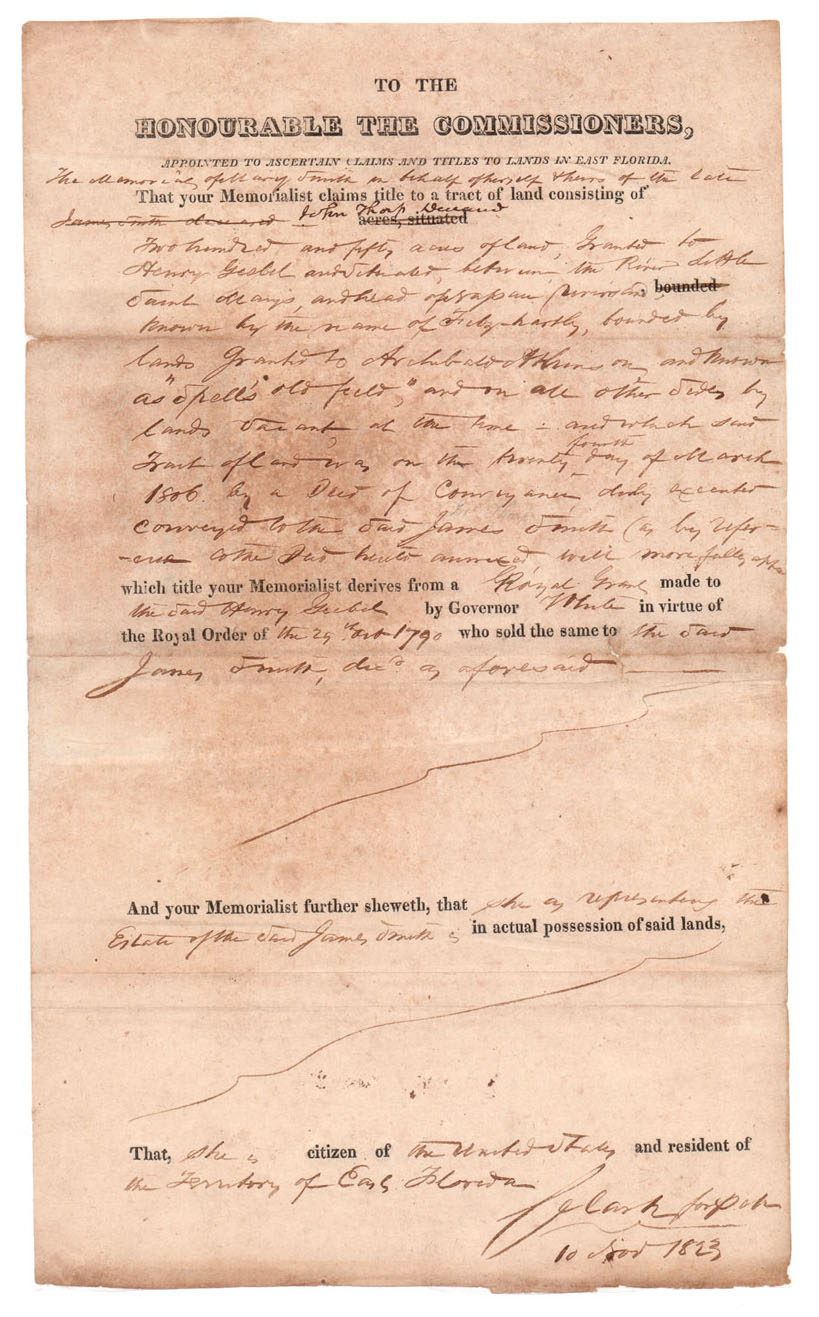 TO THE
HONOURABLE THE COMMISSIONERS,
APPOINTED TO ASCERTAIN CLAIMS AND TITLES TO LANDS IN EAST FLORIDA.
The Memorial of Mary Smith in behalf of herself & heirs of the late
That your Memorialist claims title to a tract of land consisting of
James Smith deceased John Deceased
acres, situated
Two hundred and fifty acres of land, Granted to
Henry and situated, between the River Little
Saint Marys, and head of bounded
known by the name of bounded by
lands Granted to Archibald Atkinson, and known
as "Spell's old field," and on all other sides by
lands vacant, at the time - and which said
fourth
Tract of land was on the twenty day of March
1806 by a Deed of Conveyance duly executed
conveyed to the said James Smith (as by refer-
-ence to the Deed hereto annexed will more fully
which title your Memorialist derives from a Royal Grant made to
the said Henry by Governor White in virtue of
the Royal Order of the 29th Oct 1790 who sold the same to the said
James Smith, decd as aforesaid
And your Memorialist further sheweth, that she as representing the
Estate of the said James Smith is in actual possession of said lands,
That, she is citizen of the United States and resident of
the Territory of East Florida
Clark for Pet
10 Nov 1823